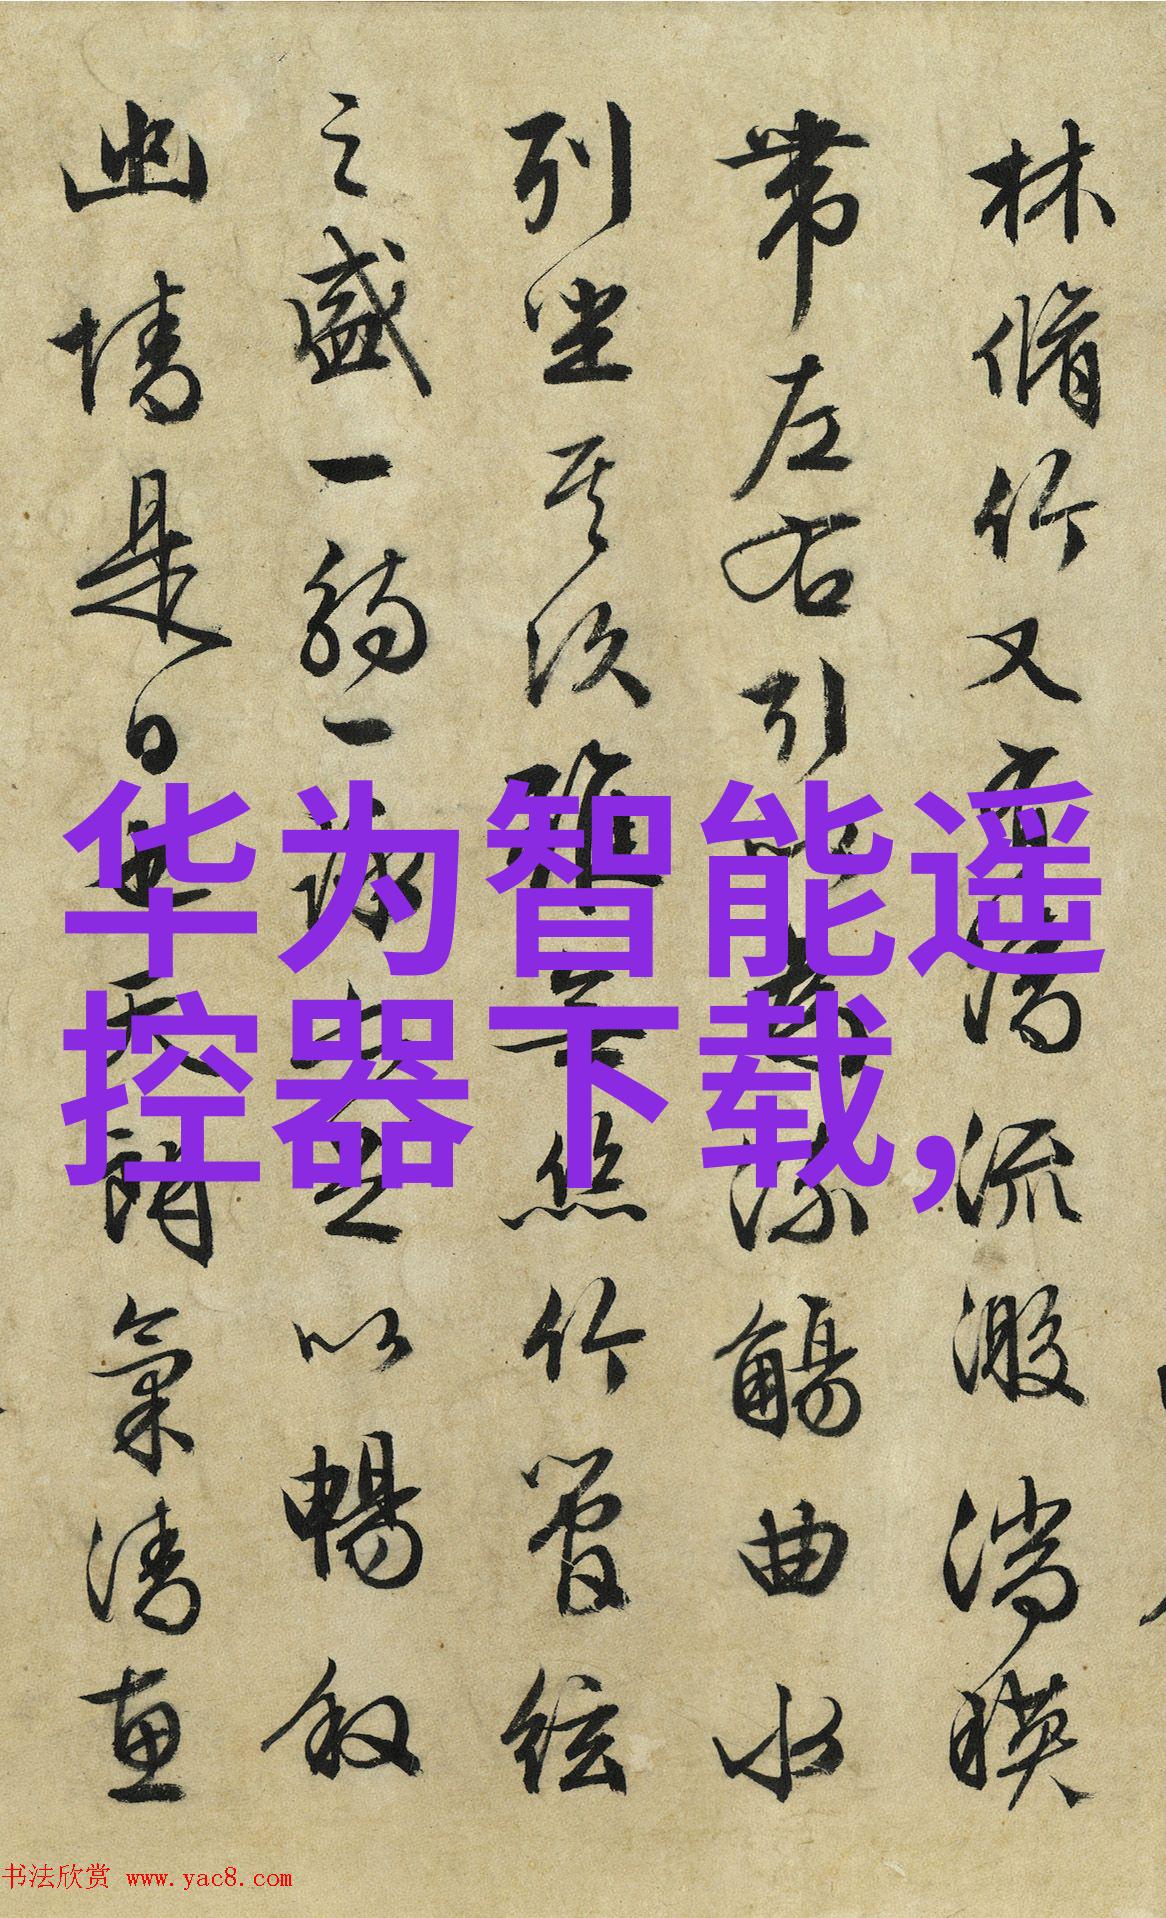 林脩竹又有清流激湍暎
帶左右引以為流觴曲水
列坐其次雖無絲竹管絃
之盛一觴一詠亦足以暢叙
幽情是日也天朗氣清惠
华为智能遥
控器下载,
书法欣赏 www.yac8.com